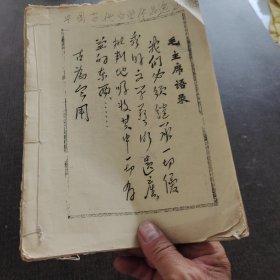 毛主席语录
我们必须继承一切优
秀的文学艺术遗产
批判地吸收其中一切有
益的东西……
古为今用